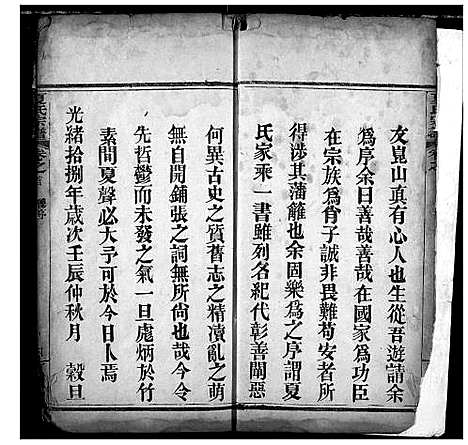 文崑山真有心人也生從吾遊請余
為序余曰善哉善哉在國家為功臣
在宗族為肖子誠非畏難苟安者所
得涉其藩籬也余固樂為之序謂夏
氏家乘一書雖列名紀代彰善闡惡
何異古史之質舊志之精凟亂之萌
無自開鋪張之詞無所尚也哉今令
先哲鬱而未發之氣一旦彪炳於竹
素間夏聲必大予可於今日卜焉
光緒拾捌年歲次壬辰仲秋月 穀旦
夏氏宗譜